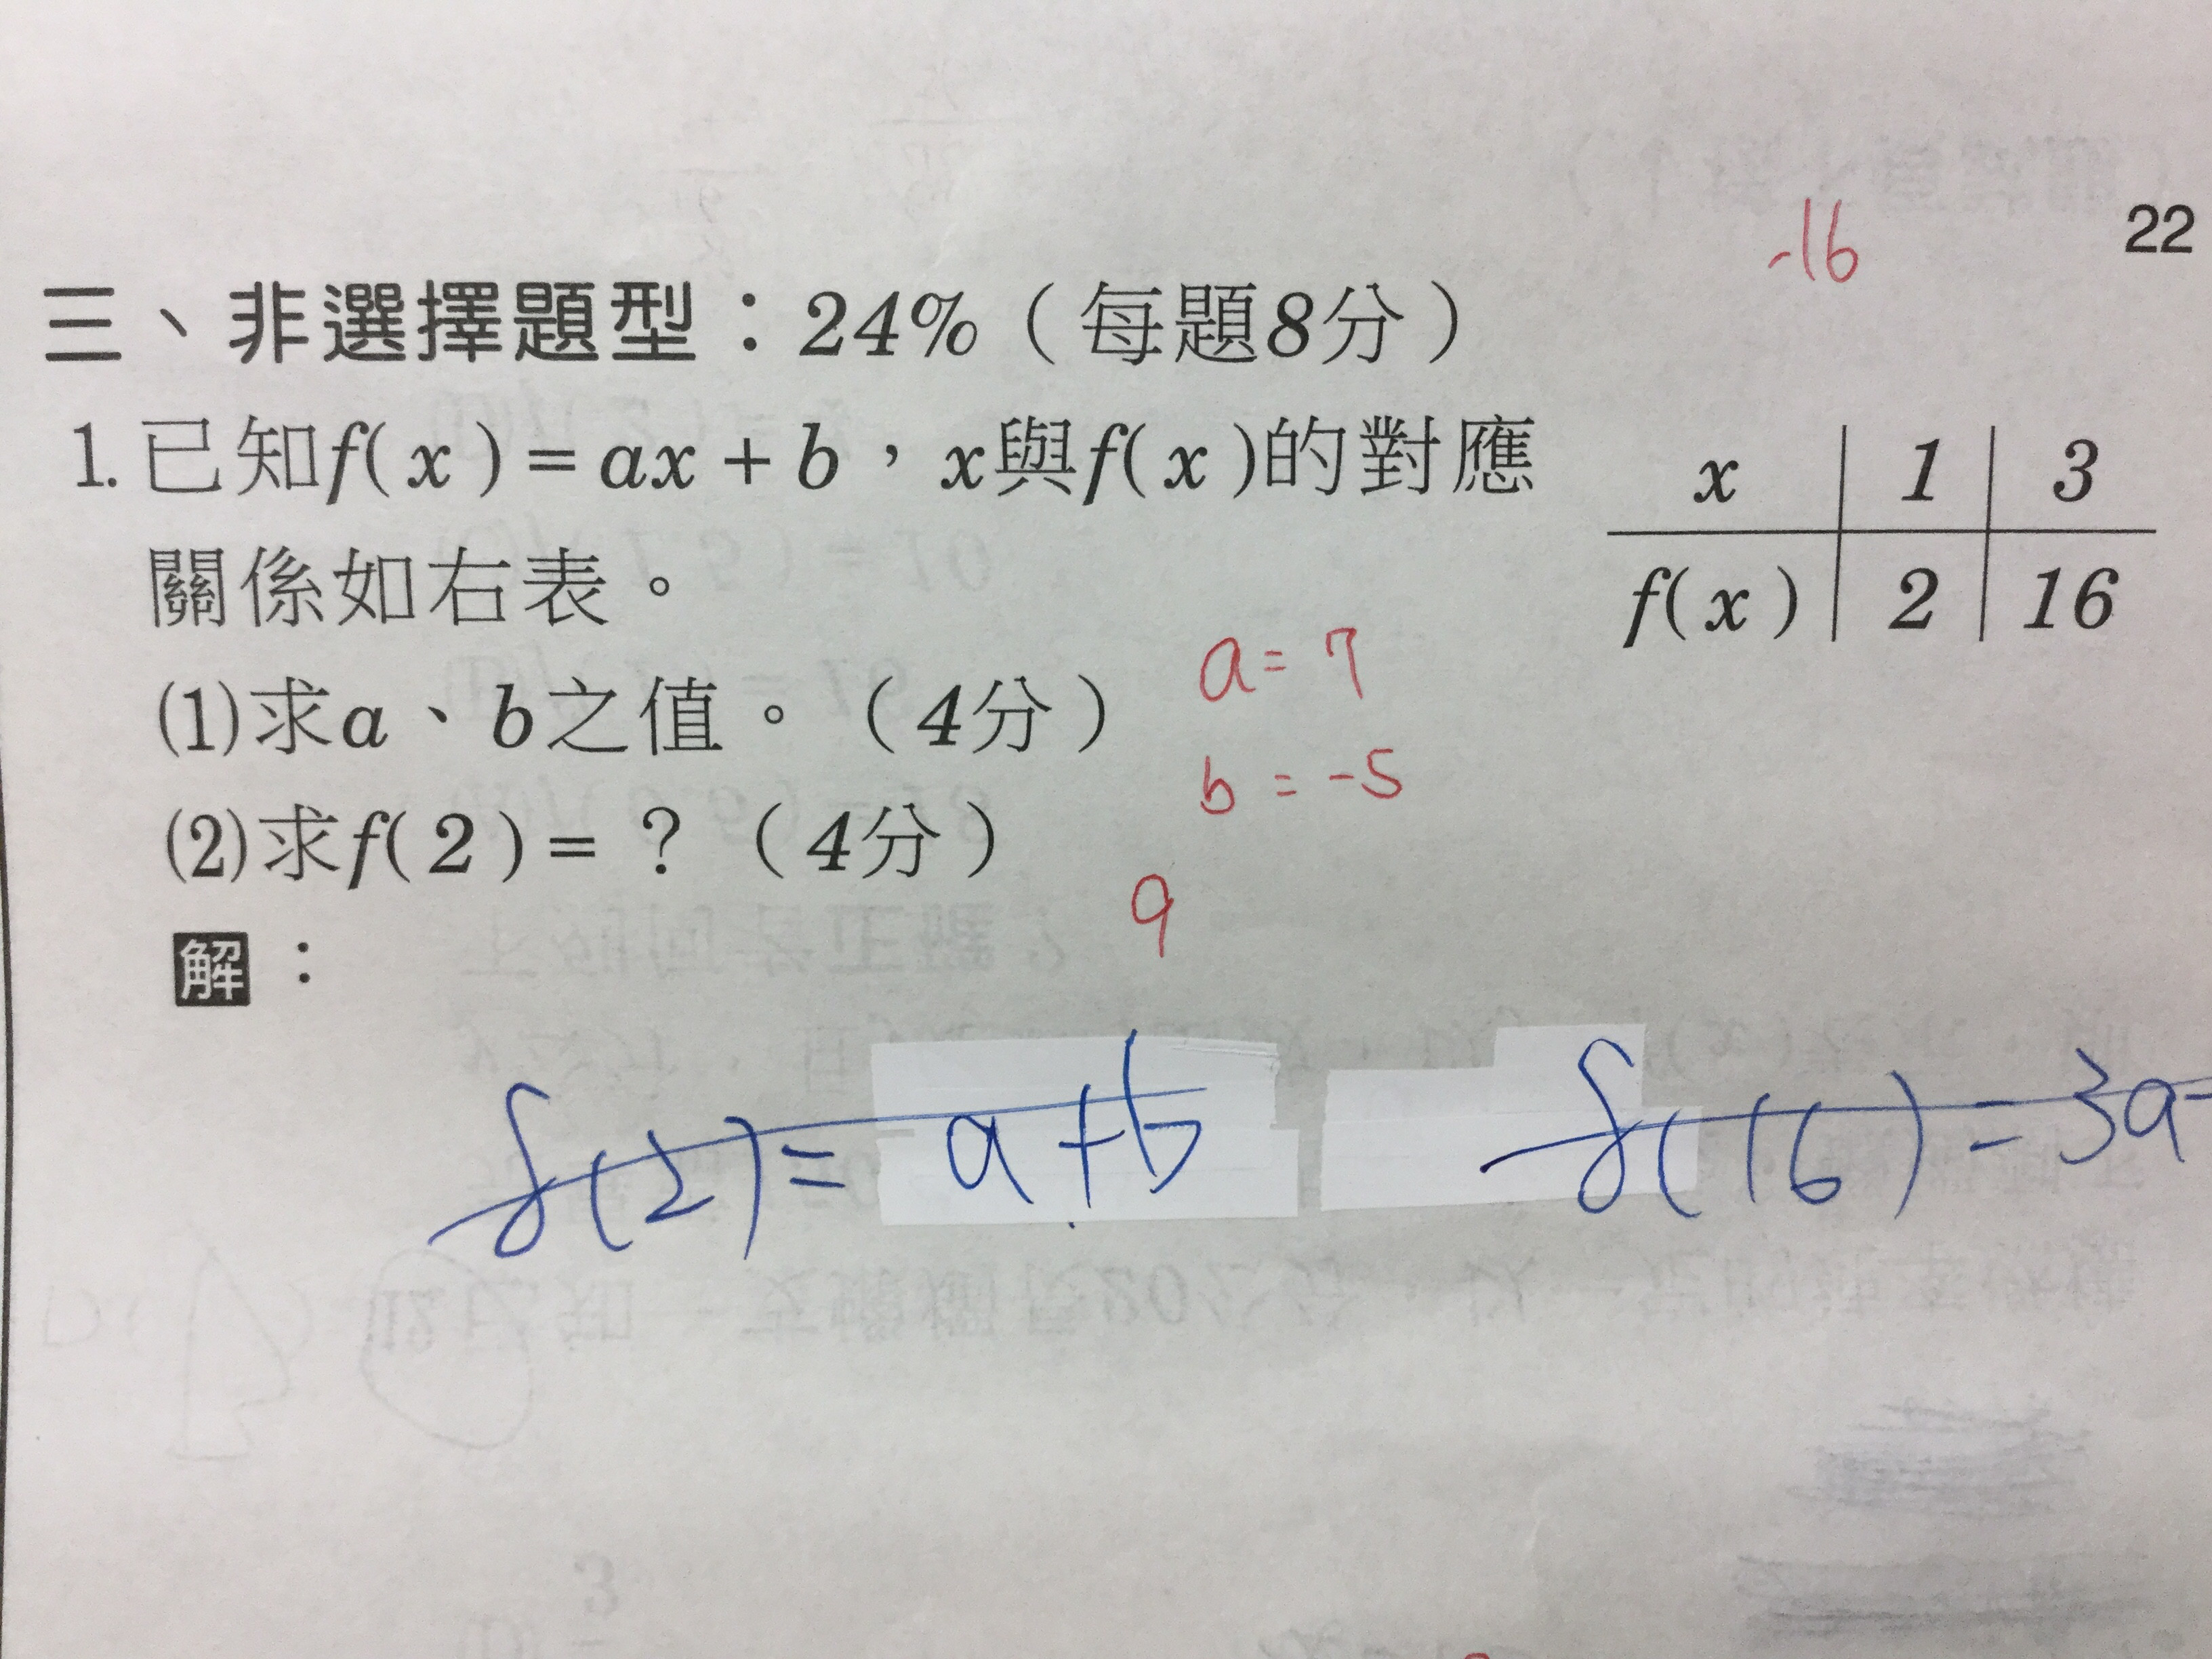 -16
22
三、非選擇題型：24%（每題8分）
1.已知f(x)=ax+b，x與f(x)的對應
關係如右表。
x 1 3
f(x) 2 16
(1)求a、b之值。（4分）
a=7
b=-5
(2)求f(2)=？（4分）
9
解：
f(2)=a+b
f(16)=3a